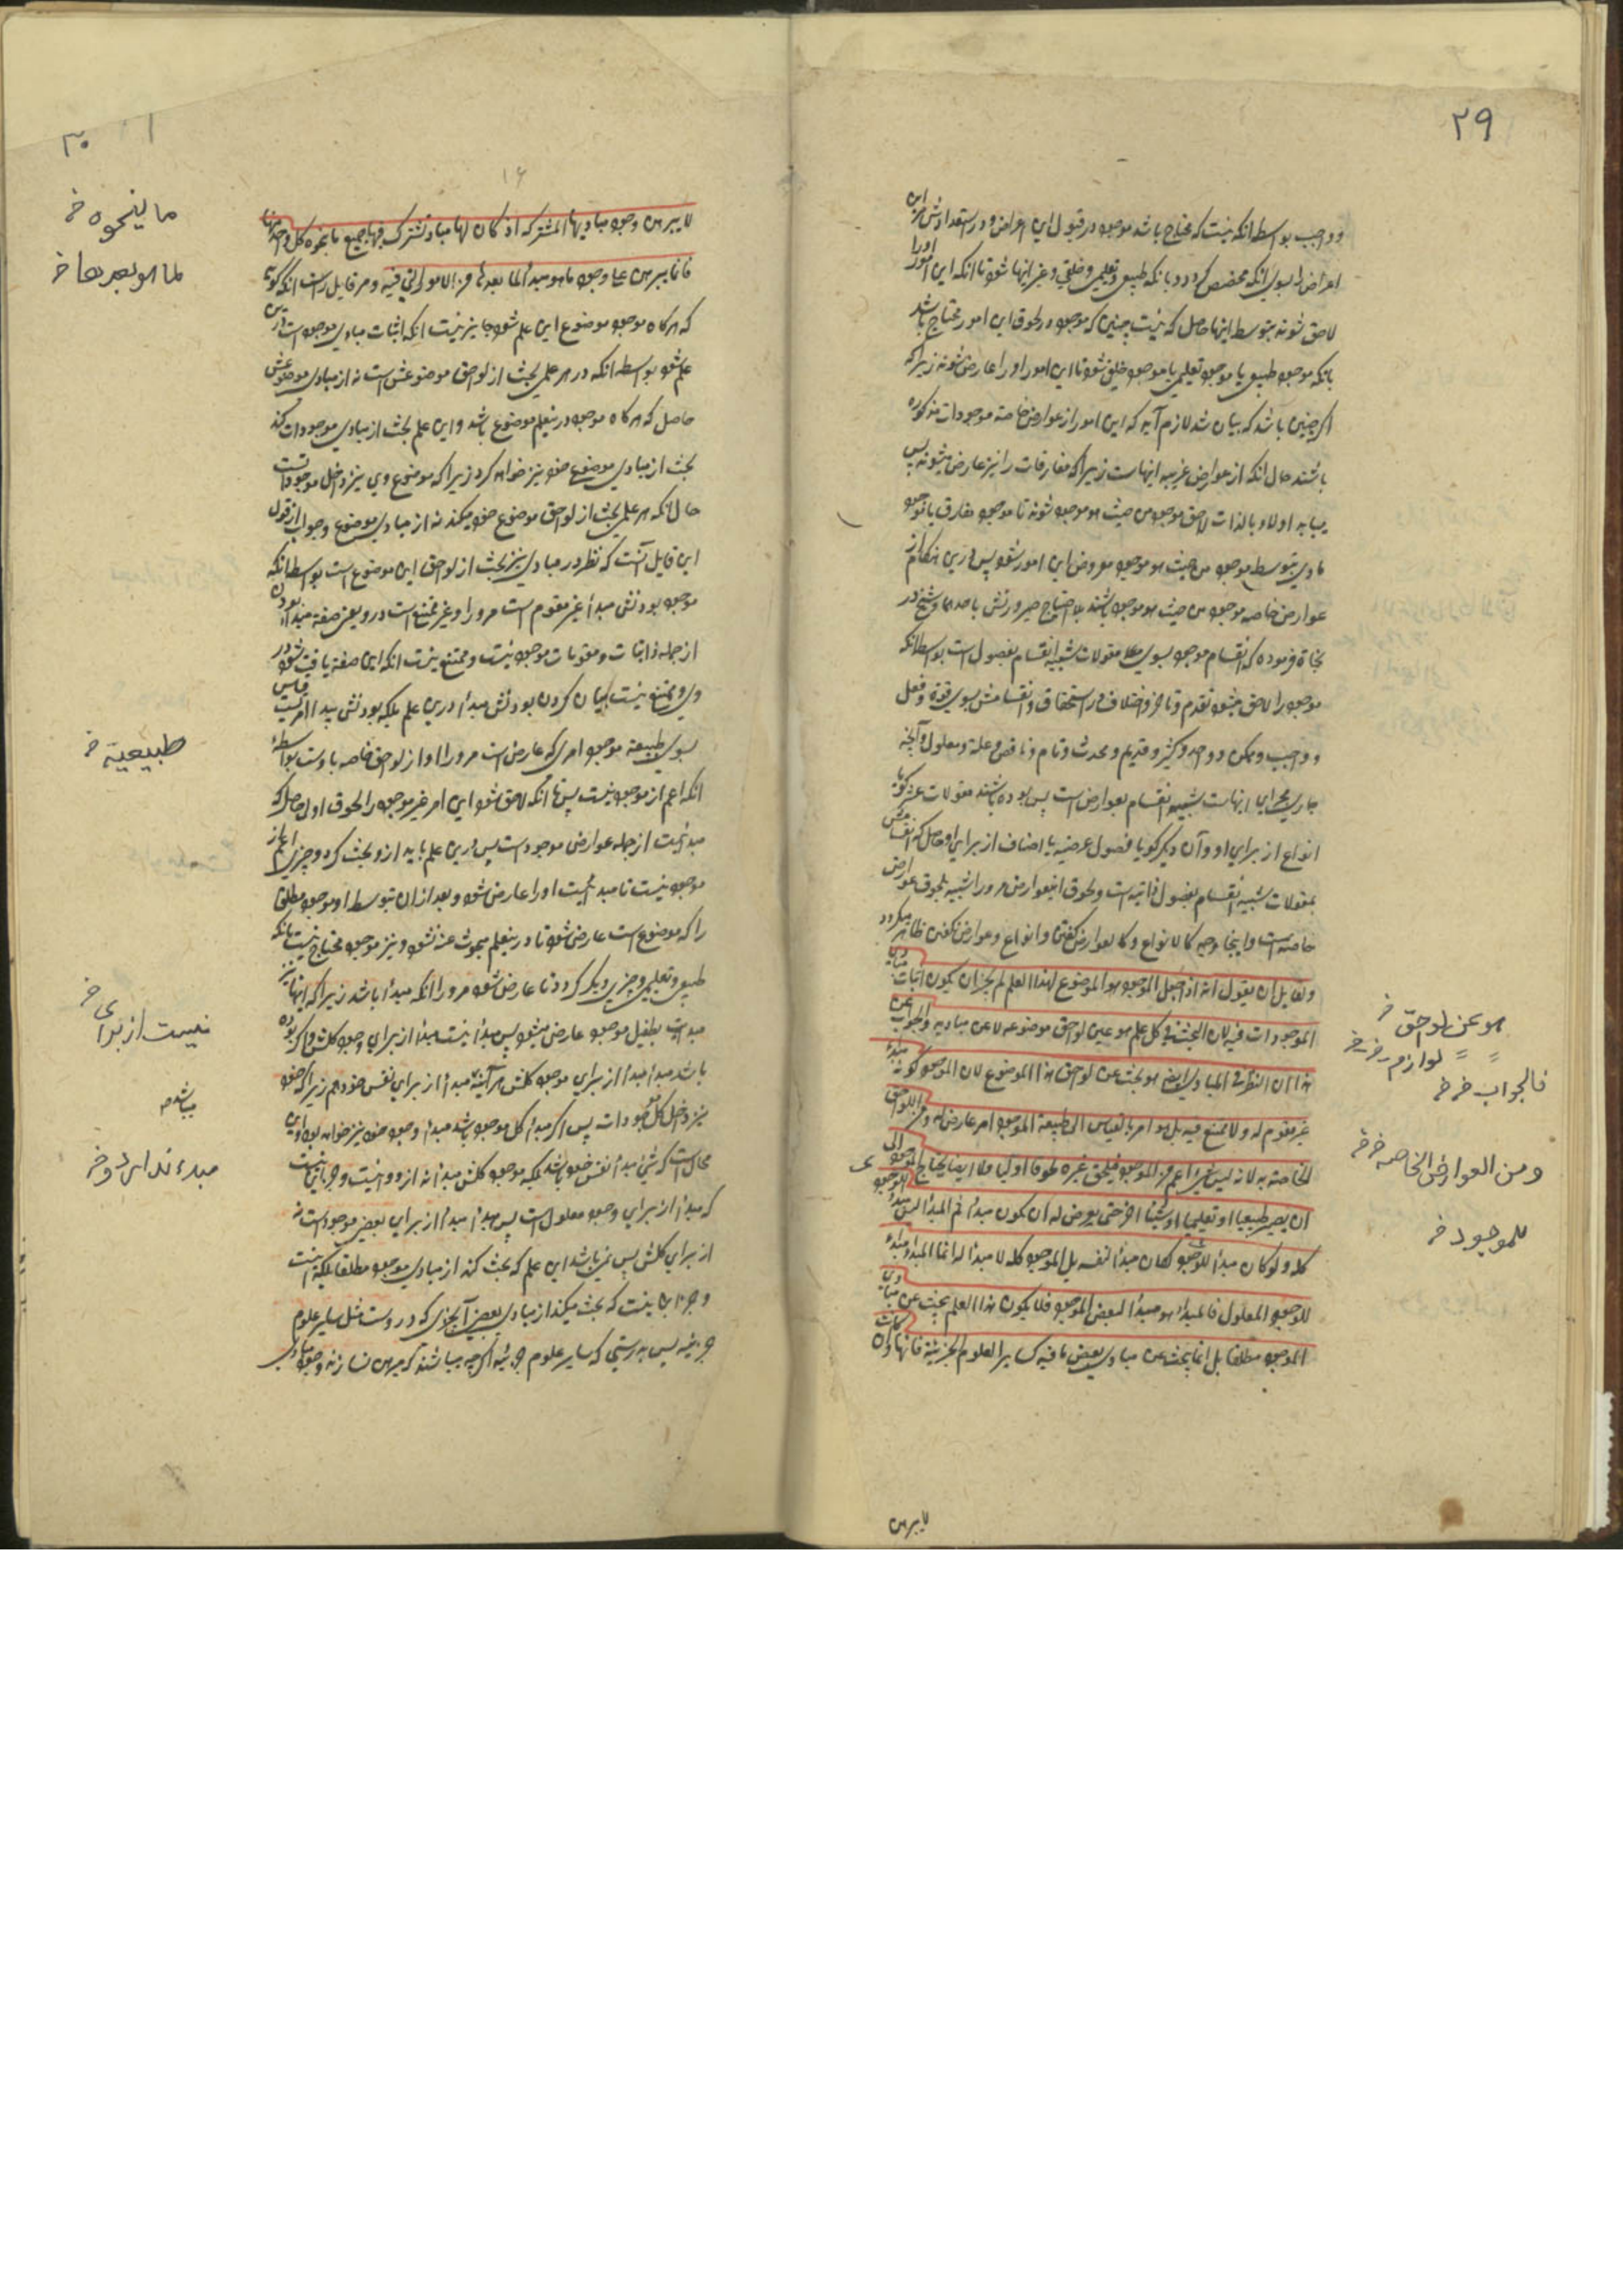 ۲۹
و واجب بواسطه انکه نیست که محتاج باشد موجود در قبول این اعراض و در استعدادش این
اعراض را بسوی انکه مخصص کردد و بانکه طبیعی و تعلیمی و خلقی و غیر اینها شود تا انکه این امور او را
لاحق شوند بتوسط اینها حاصل که نیست چنین که موجود در لحوق این امور محتاج باشد
بانکه موجود طبیعی یا موجود تعلیمی یا موجود خلقی شود تا این امور او را عارض شوند زیرا که
اکر چنین باشد که بیان شد لازم آید که این امور از عوارض خاصه موجودات مذکوره
باشند حال انکه از عوارض غریبه اینهاست زیرا که مفارقات را نیز عارض میشوند پس
میباید اولا و بالذات لاحق موجود من حیث هو موجود شوند تا موجود مفارق یا موجود
مادی بتوسط موجود من حیث هو موجود معروض این امور شود پس درین هنکام از
عوارض خاصه موجود من حیث هو موجود باشند بلا احتیاج صیرورتش باحدهما و شیخ در
نجاة فرموده که انقسام موجود بسوی مقولات شبیه انقسام بفصول است بواسطه انکه
موجود را لاحق میشود تقدم و تاخر و اختلاف در استحقاق و انقسامش بسوی قوة و فعل
و واجب و ممکن و واحد و کثیر و قدیم و محدث و تام و ناقص و علة و معلول و آنچه
جاری مجرای اینهاست شبیه انقسام بعوارض است پس بوده باشند مقولات عشر کویا
انواع از برای او و آن دیکر کویا فصول عرضیه یا اصناف از برای او حاصل که انقسامش
بمقولات شبیه انقسام بفصول ذاتیه است و لحوق اینعوارض مر او را شبیه بلحوق عوارض
خاصه است و اینجا وجه کالانواع و کالعوارض کفتن و انواع و عوارض نکفتن ظاهر میکردد
و لقایل ان یقول انه اذا جعل الموجود هو الموضوع لهذا العلم لم یجز ان یکون اثبات مبادی
الموجودات فیه لان البحث فی کل علم هو عن لواحق موضوعه لا عن مبادیه و الجواب عن
هذا ان النظر فی المبادی ایضا هو بحث عن لواحق هذا الموضوع لان الموجود کونه مبداء
غیر مقوم له و لا ممتنع فیه بل هو امر بالقیاس الی طبیعة الموجود امر عارض له و من اللواحق
الخاصة به لانه لیس شئ اعم من الموجود فیلحق غیره لحوقا اولیا و لا ایضا یحتاج الموجود الی
ان یصیر طبیعیا او تعلیمیا او شیئا اخر حتی یعرض له ان یکون مبداء ثم المبدا لیس مبدأ للموجود
کله و لو کان مبدأ للموجود کله لکان مبدأ لنفسه بل الموجود کله لا مبدأ له انما المبدا مبداء
للموجود المعلول فالمبداء هو مبدا لبعض الموجود فلا یکون هذا العلم یبحث عن مبادی
الموجود مطلقا بل انما یبحث عن مبادی بعض ما فیه کسایر العلوم الجزئیة فانها و ان کانت
لا یبرهن
هو عن لواحق خ
لوازم خ خ
فالجواب خ خ
و من العوارض الخاصه خ خ
للموجود خ
۳۰
۱۶
لا یبرهن وجود مبادیها المشترکه اذ کان لها مباد تشترک فیها جمیع ما ینحوه کل واحد منها
فانما یبرهن علی وجود ما هو مبدأ لما بعدها من الامور التی فیه و مر قایل راست انکه کوید
که هرکاه موجود موضوع این علم شود جایز نیست انکه اثبات مبادی موجودات درین
علم شود بواسطه انکه در هر علمی بحث از لواحق موضوعش است نه از مبادی موضوعش
حاصل که هرکاه موجود درینعلم موضوع باشد و این علم بحث از مبادی موجودات کند
بحث از مبادی موضوع خود نیز خواهد کرد زیرا که موضوع وی نیز داخل موجوداتست
حال انکه هر علمی بحث از لواحق موضوع خود میکند نه از مبادی موضوع و جواب از قول
این قایل آنست که نظر در مبادی نیز بحث از لواحق این موضوع است بواسطه انکه
موجود بودنش مبدأ غیر مقوم است مر او را و غیر ممتنع است در و یعنی صفة مبدا بودن
از جمله ذاتیات و مقومات موجود نیست و ممتنع نیست انکه این صفة یافت شود در
وی و ممتنع نیست بیان کردن بودنش مبدأ درین علم بلکه بودنش مبدا امریست بقیاس
بسوی طبیعة موجود امری که عارض است مر او را و از لواحق خاصه باوست بواسطهٔ
انکه اعم از موجود نیست پس تا انکه لاحق شود این امر غیر موجود را لحوق اولی حاصل که
مبدئیت از جمله عوارض موجود است پس درین علم باید از و بحث کرد و چیزی اعم از
موجود نیست تا مبدئیت او را عارض شود و بعد از ان بتوسط او موجود مطلق
را که موضوع است عارض شود تا درینعلم مبحوث عنه نشود و نیز موجود محتاج نیست بانکه
طبیعی و تعلیمی و چیزی دیکر کردد تا عارض شود مر او را انکه مبدا باشد زیرا که اینها نیز
مبدئیت بطفیل موجود عارض میشود پس مبدا نیست مبدا از برای وجود کلش و اکر بوده
باشد مبدا مبدا از برای موجود کلش هر آینه مبدا از برای نفس خود هم زیرا که خود
نیز داخل کل موجودات پس اکر مبدأ کل موجود باشد مبدء وجود خود نیز خواهد بود و این
محال است که شئ مبدأ نفس خود باشد بلکه موجود کلش مبدأ نه از و نیست و جز این نیست
که مبدأ از برای وجود معلول است پس مبدأ مبدأ از برای بعض موجود است نه
از برای کلش پس نمیباشد این علم که بحث کند از مبادی موجود مطلقا بلکه نیست
و جز این نیست که بحث میکند از مبادی بعض آنچیزی که در وست مثل سایر علوم
جزئیه پس بدرستی که سایر علوم جزئیه اکرچه میباشند که مبرهن نسازند وجود مبادی
ما ینحوه خ
لما هو بعدها خ
طبیعیة خ
نیست از برای خ
میباشد
مبدء ندارد خ